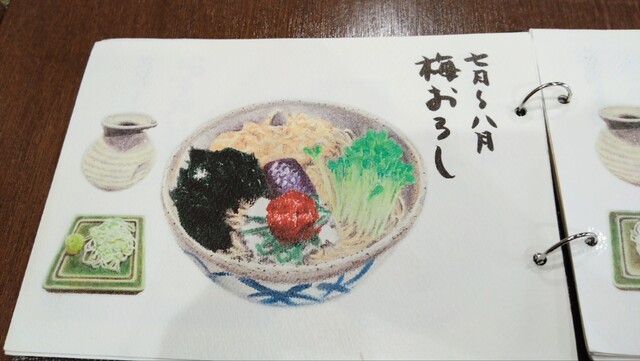 七月〜八月
梅おろし